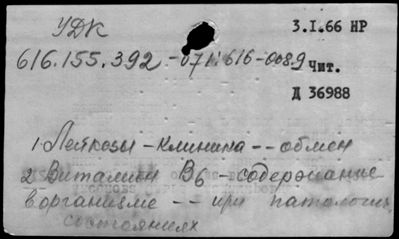 УДК
3.I.66 НР
616.155.392-071:616-0089
Чит.
Д 36988
1 Лейкозы - клиника -- обмен
2 Витамин В6 - содержание
в организме -- при патологич.
состояниях